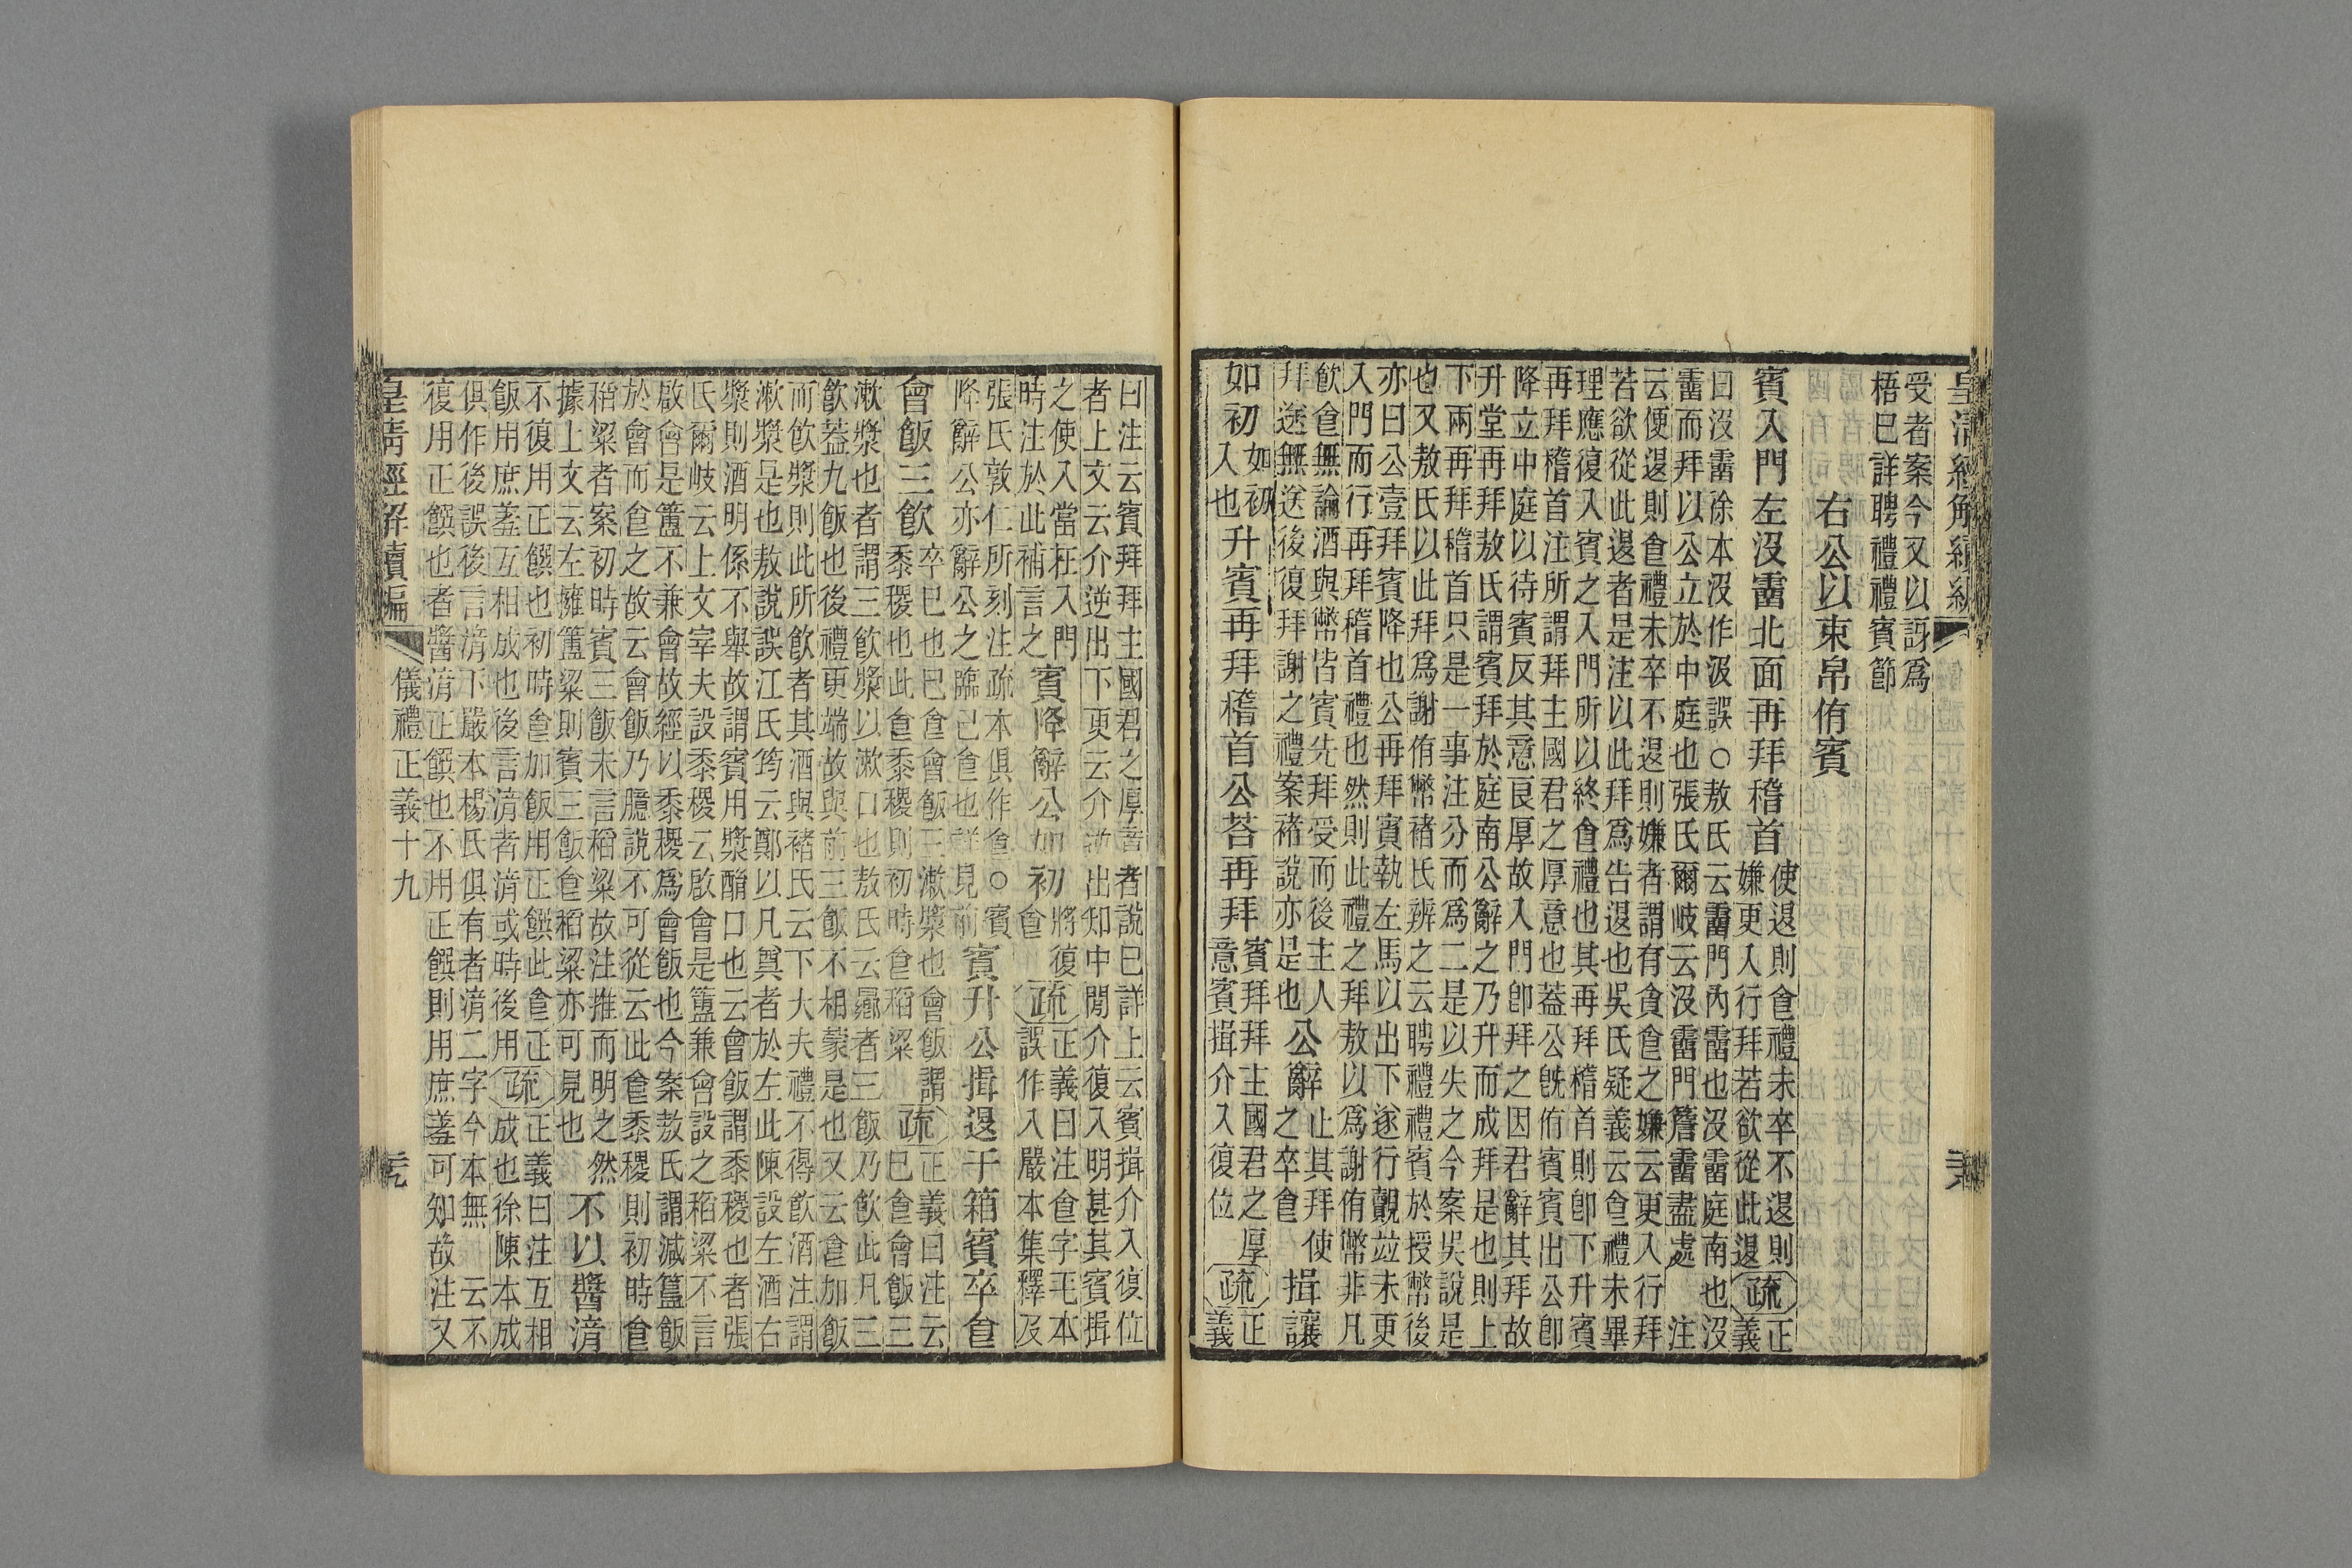 受者案今文以訝爲
梧巳詳聘禮禮賓節
右公以束帛侑賓
賓入門左沒霤北面再拜稽首
使退則食禮未卒不退則
嫌更入行拜若欲從此退
疏
正
義
曰沒霤徐本沒作汲誤○敖氏云霤門內霤也沒霤庭南也沒
霤而拜以公立於中庭也張氏爾岐云沒霤門簷霤盡處 注
云便退則食禮未卒不退則嫌者謂有貪食之嫌云更入行拜
若欲從此退者是注以此拜爲告退也吳氏疑義云食禮未畢
理應復入賓之入門所以終食禮也其再拜稽首則卽下升賓
再拜稽首注所謂拜主國君之厚意也蓋公旣侑賓賓出公卽
降立中庭以待賓反其意良厚故入門卽拜之因君辭其拜故
升堂再拜敖氏謂賓拜於庭南公辭之乃升而成拜是也則上
下兩再拜稽首只是一事注分而爲二是以失之今案吳說是
也又敖氏以此拜爲謝侑幣褚氏辨之云聘禮禮賓於授幣後
亦曰公壹拜賓降也公再拜賓執左馬以出下遂行覿竝未更
入門而行再拜稽首禮也然則此禮之拜敖以爲謝侑幣非凡
飲食無論酒與幣皆賓先拜受而後主人
拜送無送後復拜謝之禮案褚說亦是也
公辭
止其拜使
之卒食
揖讓
如初
如初
入也
升賓再拜稽首公荅再拜
賓拜拜主國君之厚
意賓揖介入復位
疏
正
義
曰注云賓拜拜主國君之厚意者說巳詳上云賓揖介入復位
者上文云介逆出下更云介逆出知中閒介復入明甚其賓揖
之使入當在入門
時注於此補言之
賓降辭公如初
將復
食
疏
正義曰注食字毛本
誤作入嚴本集釋及
張氏敦仁所刻注疏本俱作食○賓
降辭公亦辭公之臨己食也詳見前
賓升公揖退于箱賓卒食
會飯三飲
卒巳也巳食會飯三漱漿也會飯謂
黍稷也此食黍稷則初時食稻粱
疏
正義曰注云
巳食會飯三
漱漿也者謂三飲漿以漱口也敖氏云曏者三飯乃飲此凡三
飲蓋九飯也後禮更端故與前三飯不相蒙是也又云食加飯
而飲漿則此所飲者其酒與褚氏云下大夫禮不得飲酒注謂
漱漿是也敖說誤江氏筠云鄭以凡奠者於左此陳設左酒右
漿則酒明係不舉故謂賓用漿酳口也云會飯謂黍稷也者張
氏爾岐云上文宰夫設黍稷云啟會是簋兼會設之稻粱不言
啟會是簠不兼會故經以黍稷爲會飯也今案敖氏謂減簋飯
於會而食之故云會飯乃臆說不可從云此食黍稷則初時食
稻粱者案初時賓三飯未言稻粱故注推而明之然
據上文云左擁簠粱則賓三飯食稻粱亦可見也
不以醬湆
不復用正饌也初時食加飯用正饌此食正
飯用庶羞互相成也後言湆者湆或時後用
疏
正義曰注互相
成也徐陳本成
俱作後誤後言湆下嚴本楊氏俱有者湆二字今本無 云不
復用正饌也者醬湆正饌也不用正饌則用庶羞可知故注又
皇清經解續編
儀禮正義十九